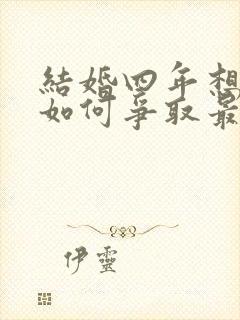 結婚四年想
如何爭取最
伊靈